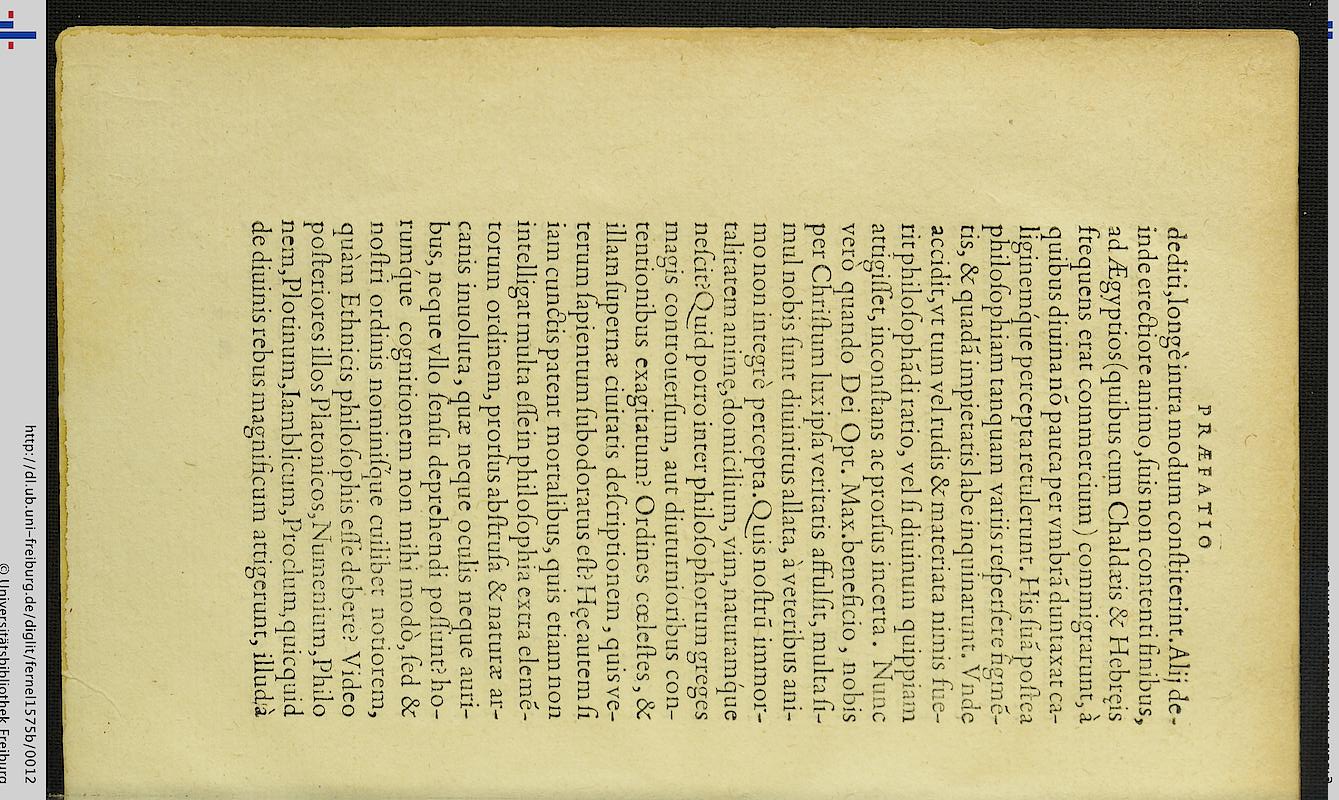 PRÆFATIO
dediti, longè intra modum conſtiterint. Alij de-
inde erectiore animo, ſuis non contenti finibus,
ad Ægyptios (quibus cum Chaldæis & Hebręis
frequens erat commercium) commigrarunt, à
quibus diuina nõ pauca per vmbrã duntaxat ca-
liginemq́ue percepta retulerunt. His ſuã poſtea
philoſophiam tanquam variis reſperſere figmē-
tis, & quadã impietatis labe inquinarunt. Vnde
accidit, vt tum vel rudis & materiata nimis fue-
rit philoſophãdi ratio, vel ſi diuinum quippiam
attigiſſet, inconſtans ac prorſus incerta. Nunc
verò quando Dei Opt. Max. beneficio, nobis
per Chriſtum lux ipſa veritatis affulſit, multa ſi-
mul nobis ſunt diuinitus allata, à veteribus ani-
mo non integrè percepta. Quis noſtrũ immor-
talitatem animę, domicilium, vim, naturamq́ue
neſcit? Quid porro inter philoſophorum greges
magis controuerſum, aut diuturnioribus con-
tentionibus exagitatum? Ordines cœleſtes, &
illam ſupernæ ciuitatis deſcriptionem, quis ve-
terum ſapientum ſubodoratus eſt? Hęc autem ſi
iam cunctis patent mortalibus, quis etiam non
intelligat multa eſſe in philoſophia extra elemē-
torum ordinem, prorſus abſtruſa & naturæ ar-
canis inuoluta, quæ neque oculis neque auri-
bus, neque vllo ſenſu deprehendi poſſunt? ho-
rumq́ue cognitionem non mihi modò, ſed &
noſtri ordinis nominiſque cuilibet notiorem,
quàm Ethnicis philoſophis eſſe debere? Video
poſteriores illos Platonicos, Numenium, Philo
nem, Plotinum, Iamblicum, Proclum, quicquid
de diuinis rebus magnificum attigerunt, illud à
http://dl.ub.uni-freiburg.de/diglit/fernel1575b/0012
© Universitätsbibliothek Freiburg